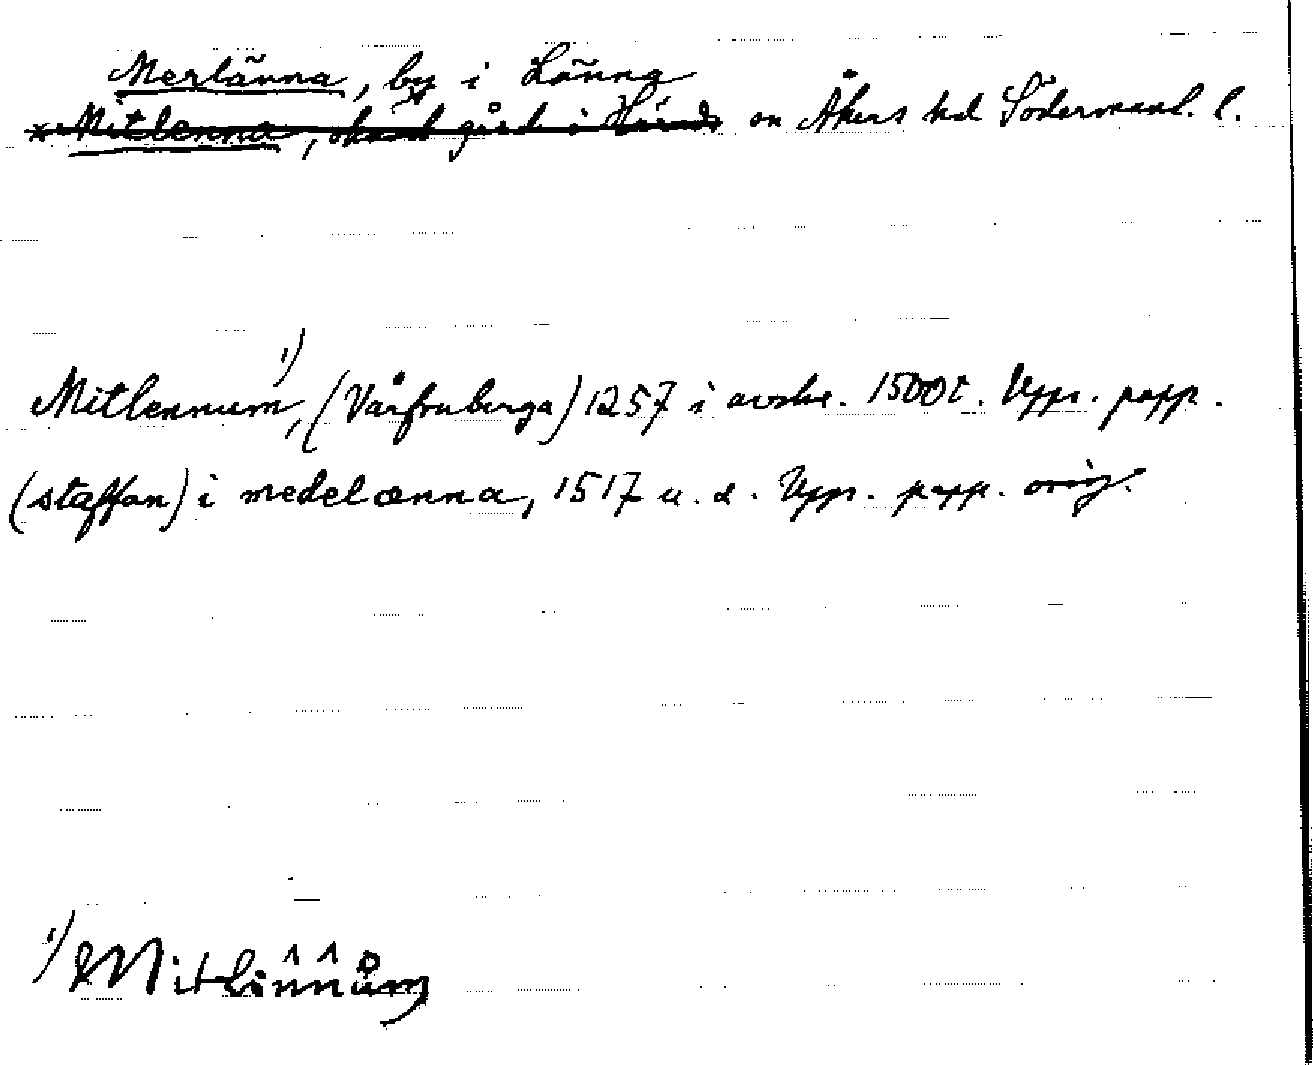 Merlänna, by i Länna
× Mitlenna, okänd gård i Härads sn Åkers hd Södermanl. l.
Mitlennum 1), (Vårfruberga) 1257 i avskr. 1500t. Upps. papp.
(staffan) i medelænna, 1517 u. d. Upps. papp. orig.
1)